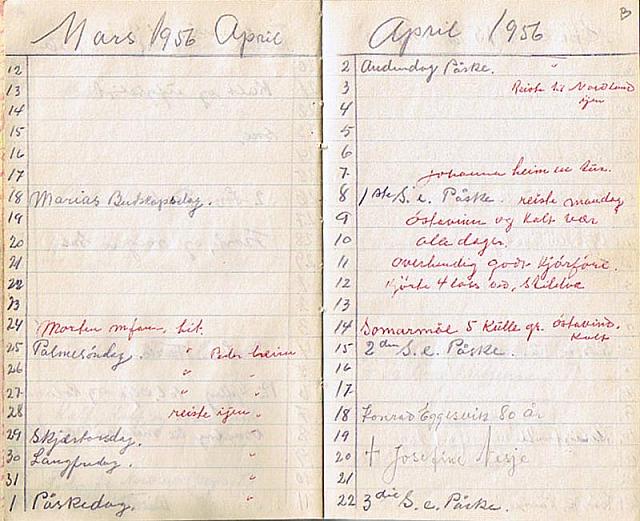 Mars 1956 April
12
13
14
15
16
17
18 Marias Budskapsdag.
19
20
21
22
23
24 Morten m fam, hit.
25 Palmesøndag. " Peder heim
26 " "
27 " "
28 reiste igjen "
29 Skjærtorsdag.
30 Langfredag. "
31 "
1 Påskedag. "
April 1956
B
2 Anden dag Påske. "
3 Reiste til Nordland
4 igjen
5
6
7 Johanna heim en tur.
8 1ste S. e. Påske. reiste mandag
9 Østavinn og kalt vær
10 alle dager.
11 overhendig godt kjørføre.
12 Kjørte 4 lass ved,
13
14 Somarmål 5 kulle gr. Østavind.
kalt
15 2den S. e. Påske.
16
17
18 Konrad Eggesvik 80 år
19
20 † Josefine Nesje
21
22 3die S. e. Påske.